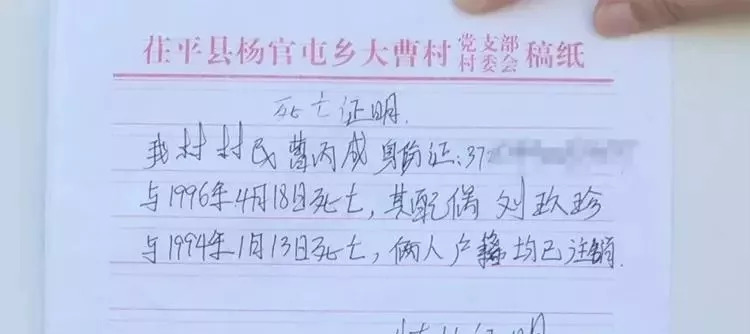 茌平县杨官屯乡大曹村党支部村委会稿纸
死亡证明.
我村村民曹丙成身份证:37
与1996年4月18日死亡,其配偶刘玖珍
与1994年1月13日死亡,俩人户籍均已注销.